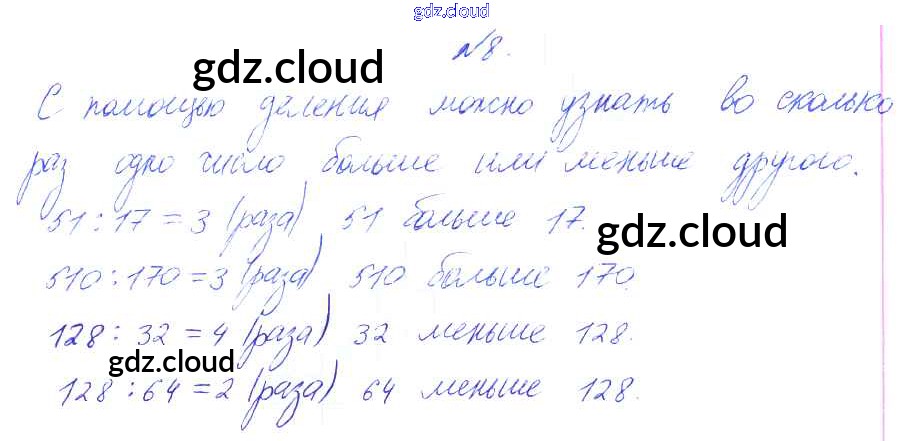 gdz.cloud
№8.
gdz.cloud
С помощью деления можно узнать во сколько
раз одно число больше или меньше другого.
51 : 17 = 3 (раза) 51 больше 17.
gdz.cloud
510 : 170 = 3 (раза) 510 больше 170.
128 : 32 = 4 (раза) 32 меньше 128.
gdz.cloud
128 : 64 = 2 (раза) 64 меньше 128.